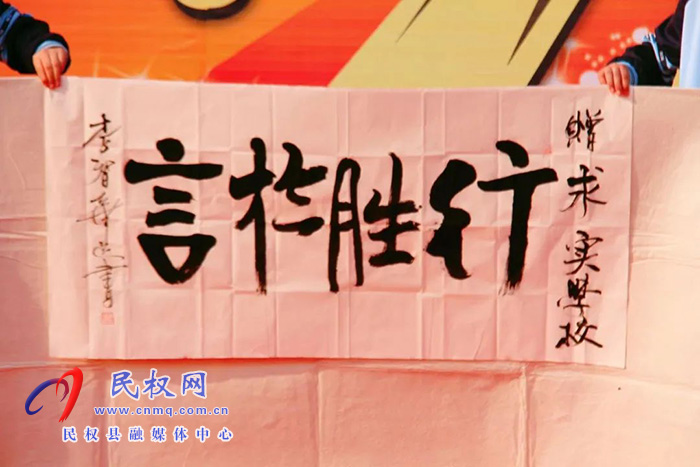 赠求实学校
行胜於言
李智
书
民权网
www.cnmq.com.cn
民权县融媒体中心